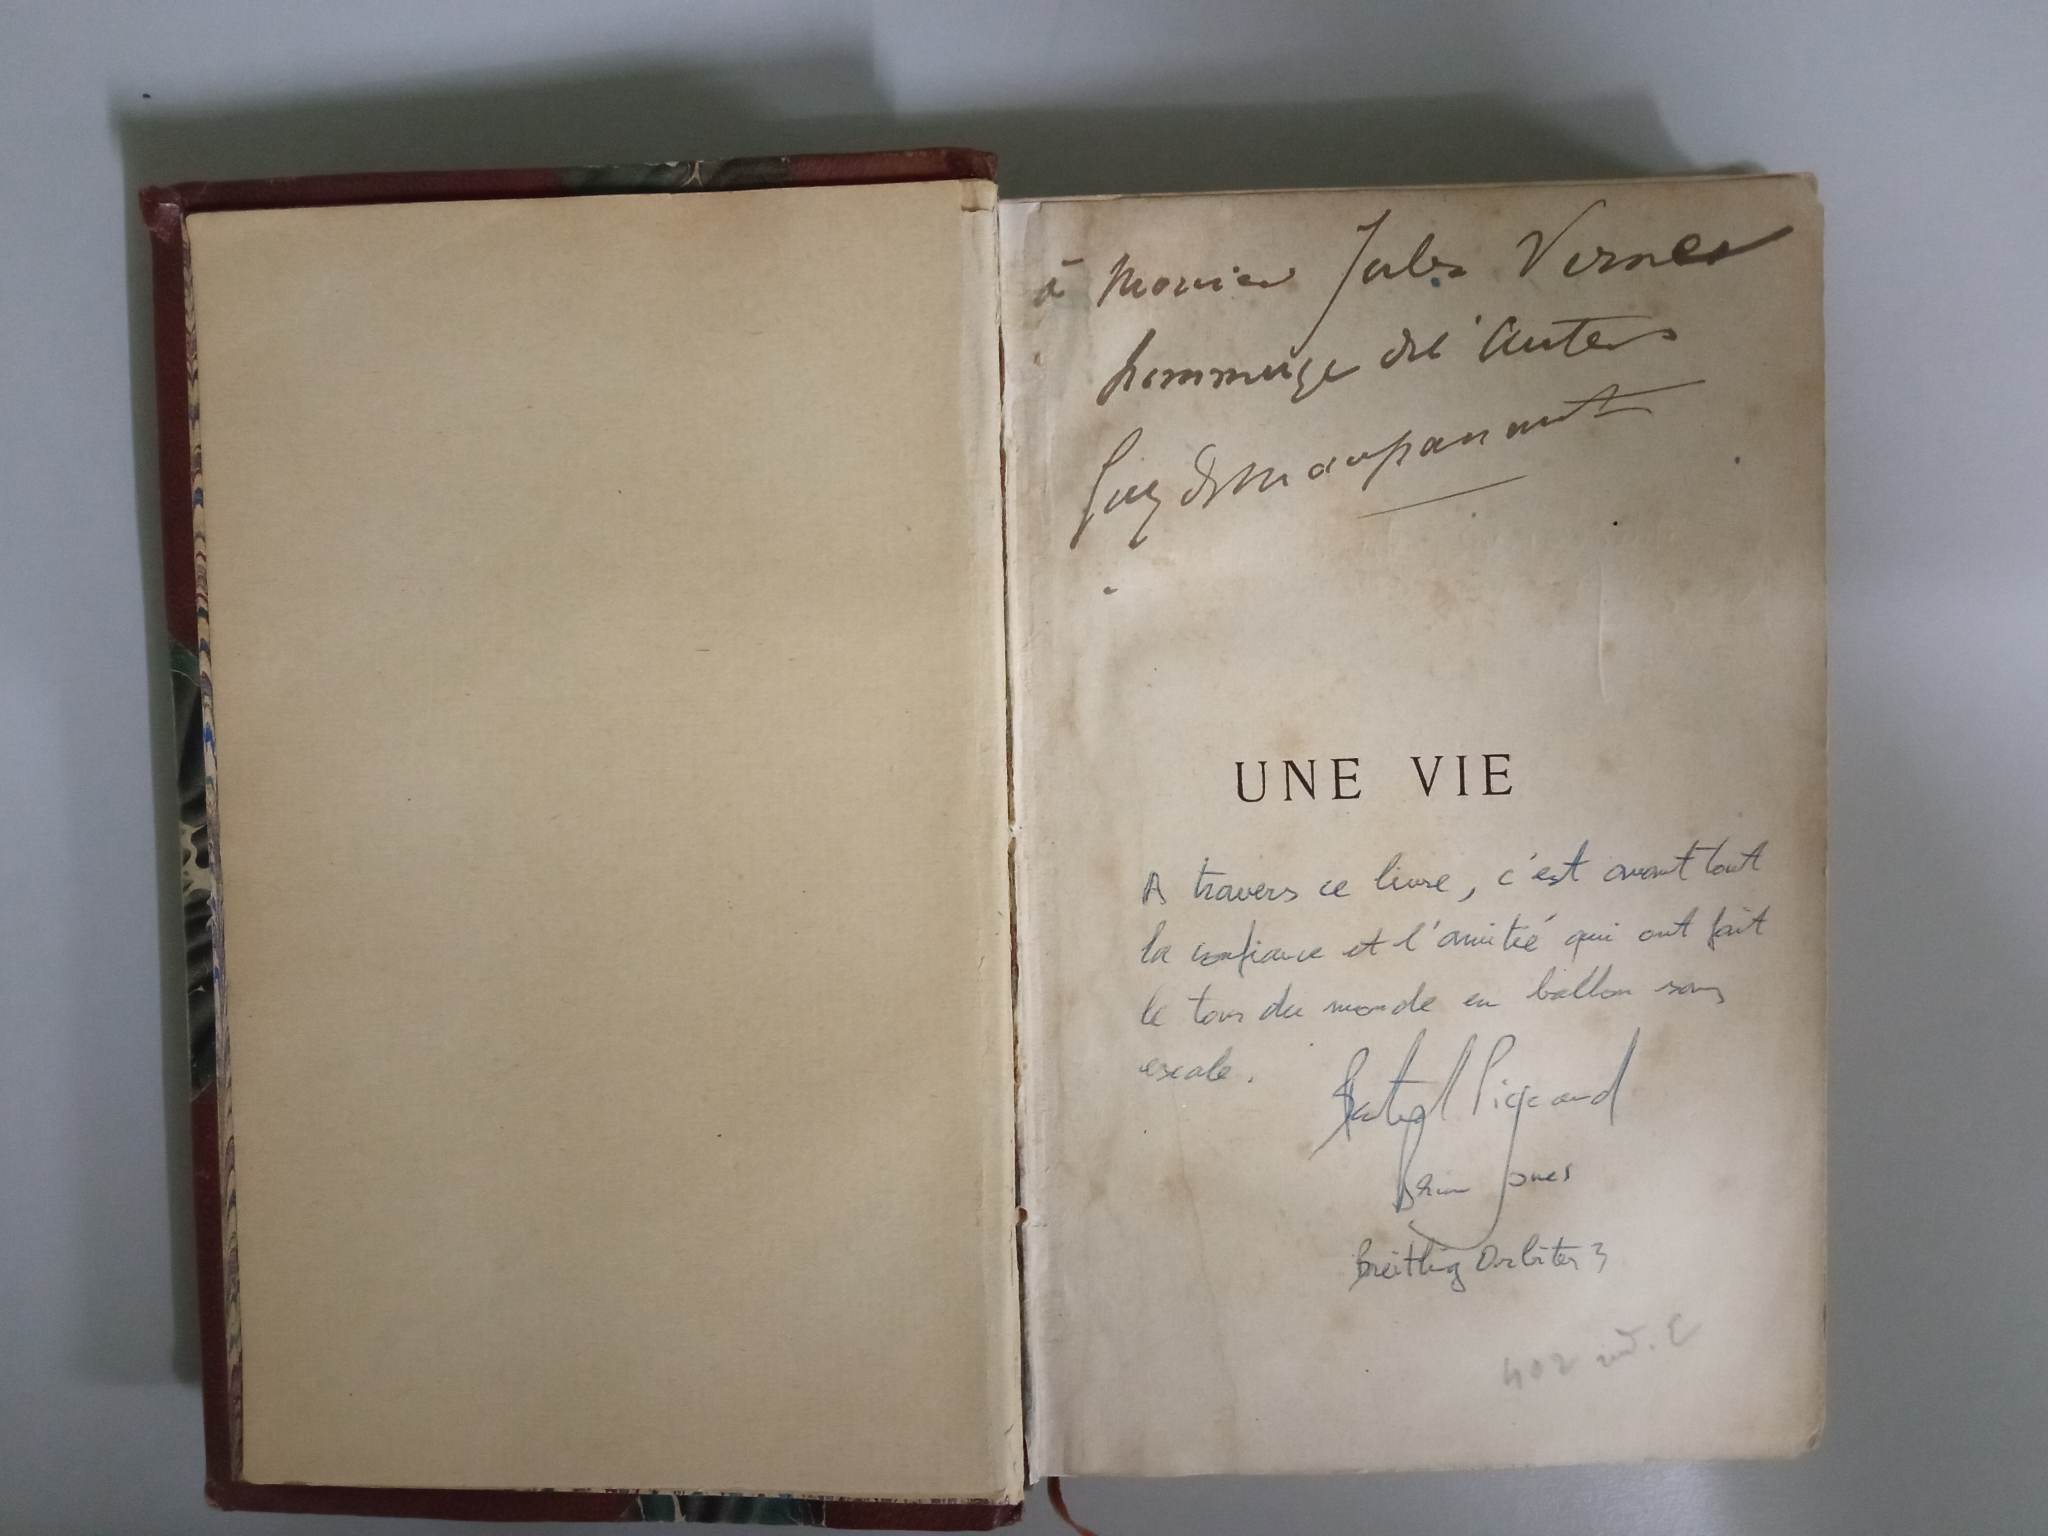 à Monsieur Jules Vernes
hommage de l'auteur
Guy de Maupassant
UNE VIE
A travers ce livre, c'est avant tout
la confiance et l'amitié qui ont fait
le tour du monde en ballon sans
escale.
Bertrand Piccard
Brian Jones
Breitling Orbiter 3
402